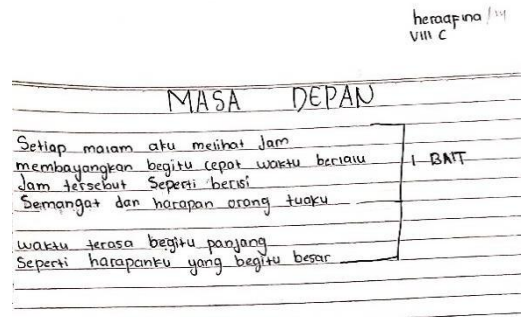 heraafina /14
VIII C
MASA DEPAN
Setiap malam aku melihat Jam
membayangkan begitu cepat waktu berlalu
Jam tersebut Seperti berisi
Semangat dan harapan orang tuaku
1 BAIT
waktu terasa begitu panjang
Seperti harapanku yang begitu besar